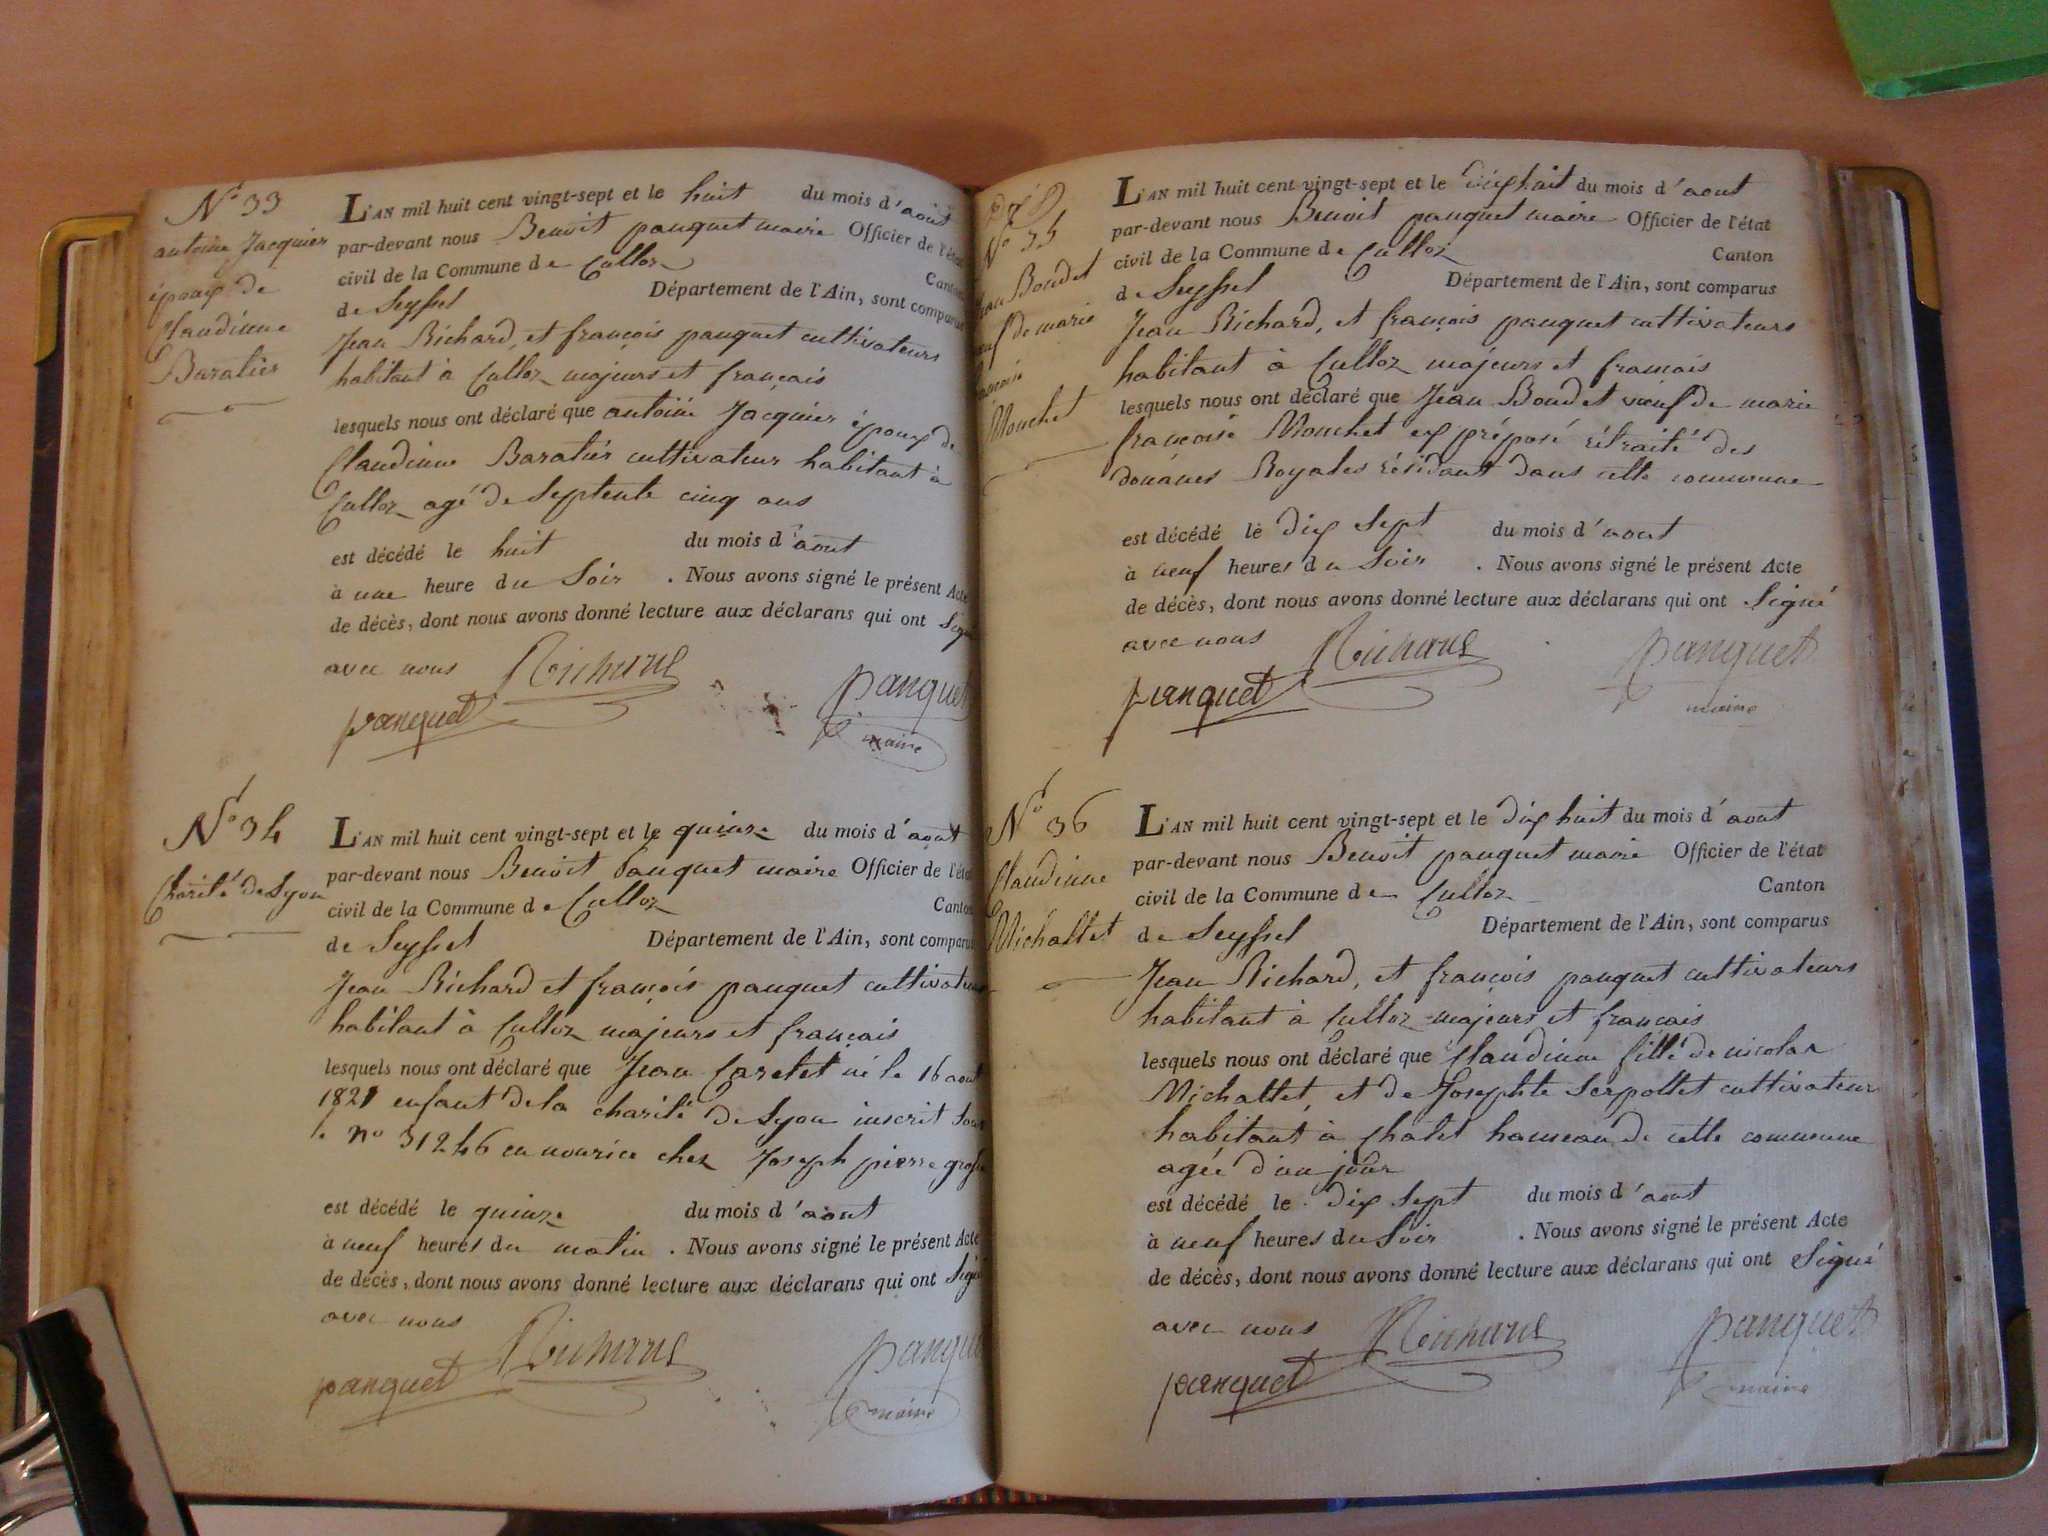 N° 33
antoine Jacquier
époux de
Claudinne
Baratier
L'AN mil huit cent vingt-sept et le huit du mois d'aout
par-devant nous Benoit panquet maire Officier de l'état
civil de la Commune de Culloz Canton
de Seyssel Département de l'Ain, sont comparus
Jean Richard, et françois panquet cultivateurs
habitant à Culloz majeurs et français
lesquels nous ont déclaré que antoine Jacquier époux de
Claudinne Baratier cultivateur habitant à
Culloz agé de Septente cinq ans
est décédé le huit du mois d'aout
à une heure du Soir . Nous avons signé le présent Acte
de décès, dont nous avons donné lecture aux déclarans qui ont Signé
avec nous Richard panquet
panquet maire
N° 34
Charité de Lyon
L'AN mil huit cent vingt-sept et le quinze du mois d'aout
par-devant nous Benoit panquet maire Officier de l'état
civil de la Commune de Culloz Canton
de Seyssel Département de l'Ain, sont comparus
Jean Richard et françois panquet cultivateurs
habitant à Culloz majeurs et français
lesquels nous ont déclaré que Jean né le 16 aout
1821 enfant de la charité de Lyon inscrit Sous
n° 31246 en nourice chez Joseph pierre
est décédé le quinze du mois d'aout
à neuf heures du matin . Nous avons signé le présent Acte
de décès, dont nous avons donné lecture aux déclarans qui ont Signé
avec nous Richard panquet
panquet maire
N° 35
Jean Boudet
veuf de marie
françoise
Mouchet
L'AN mil huit cent vingt-sept et le dix huit du mois d'aout
par-devant nous Benoit panquet maire Officier de l'état
civil de la Commune de Culloz Canton
de Seyssel Département de l'Ain, sont comparus
Jean Richard, et françois panquet cultivateurs
habitant à Culloz majeurs et francais
lesquels nous ont déclaré que Jean Boudet vieuf de marie
françoise Mouchet ex préposé rétraité des
douanes Royales résidant dans cette commune
est décédé le dix Sept du mois d'aout
à neuf heures du Soir . Nous avons signé le présent Acte
de décès, dont nous avons donné lecture aux déclarans qui ont Signé
avec nous Richard panquet
panquet maire
N° 36
Claudinne
Michallet
L'AN mil huit cent vingt-sept et le dix huit du mois d'aout
par-devant nous Benoit panquet maire Officier de l'état
civil de la Commune de Culloz Canton
de Seyssel Département de l'Ain, sont comparus
Jean Richard, et françois panquet cultivateurs
habitant à Culloz majeurs et français
lesquels nous ont déclaré que Claudinne fille de nicolas
Michallet, et de Josephte Serpollet cultivateurs
habitant à Chatel hameau de cette commune
agée d'un jour
est décédé le dix Sept du mois d'aout
à neuf heures du Soir . Nous avons signé le présent Acte
de décès, dont nous avons donné lecture aux déclarans qui ont Signé
avec nous Richard panquet
panquet maire